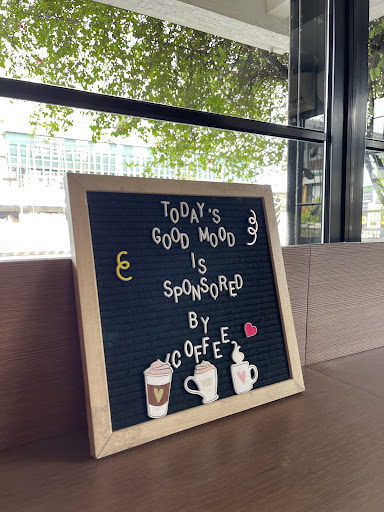 TODAY'S
GOOD MOOD
IS
SPONSORED
BY
"COFFEE"